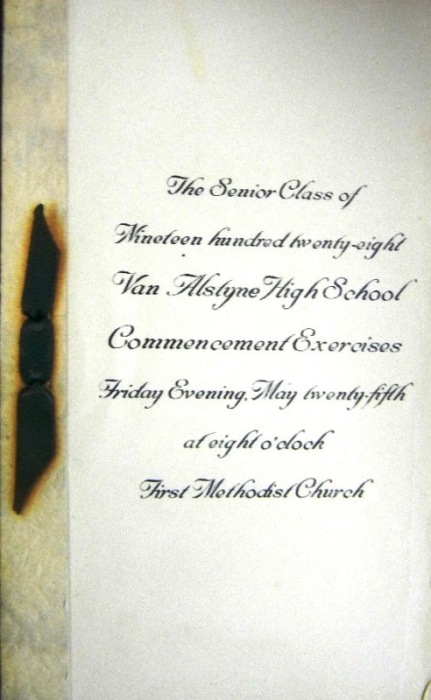 The Senior Class of
Nineteen hundred twenty-eight
Van Alstyne High School
Commencement Exercises
Friday Evening, May twenty-fifth
at eight o'clock
First Methodist Church